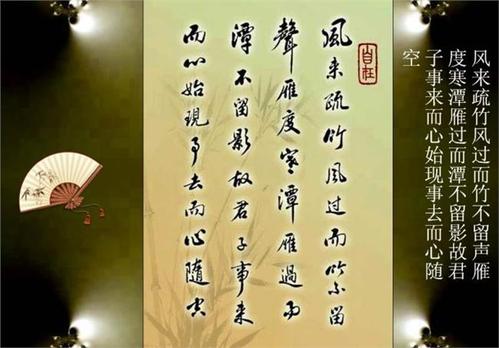 风来疏竹风过而竹不留声雁
度寒潭雁过而潭不留影故君
子事来而心始现事去而心随
空
自在
風来疏竹風过而竹不留
聲雁度寒潭雁過而
潭不留影故君子事来
而心始現事去而心随空